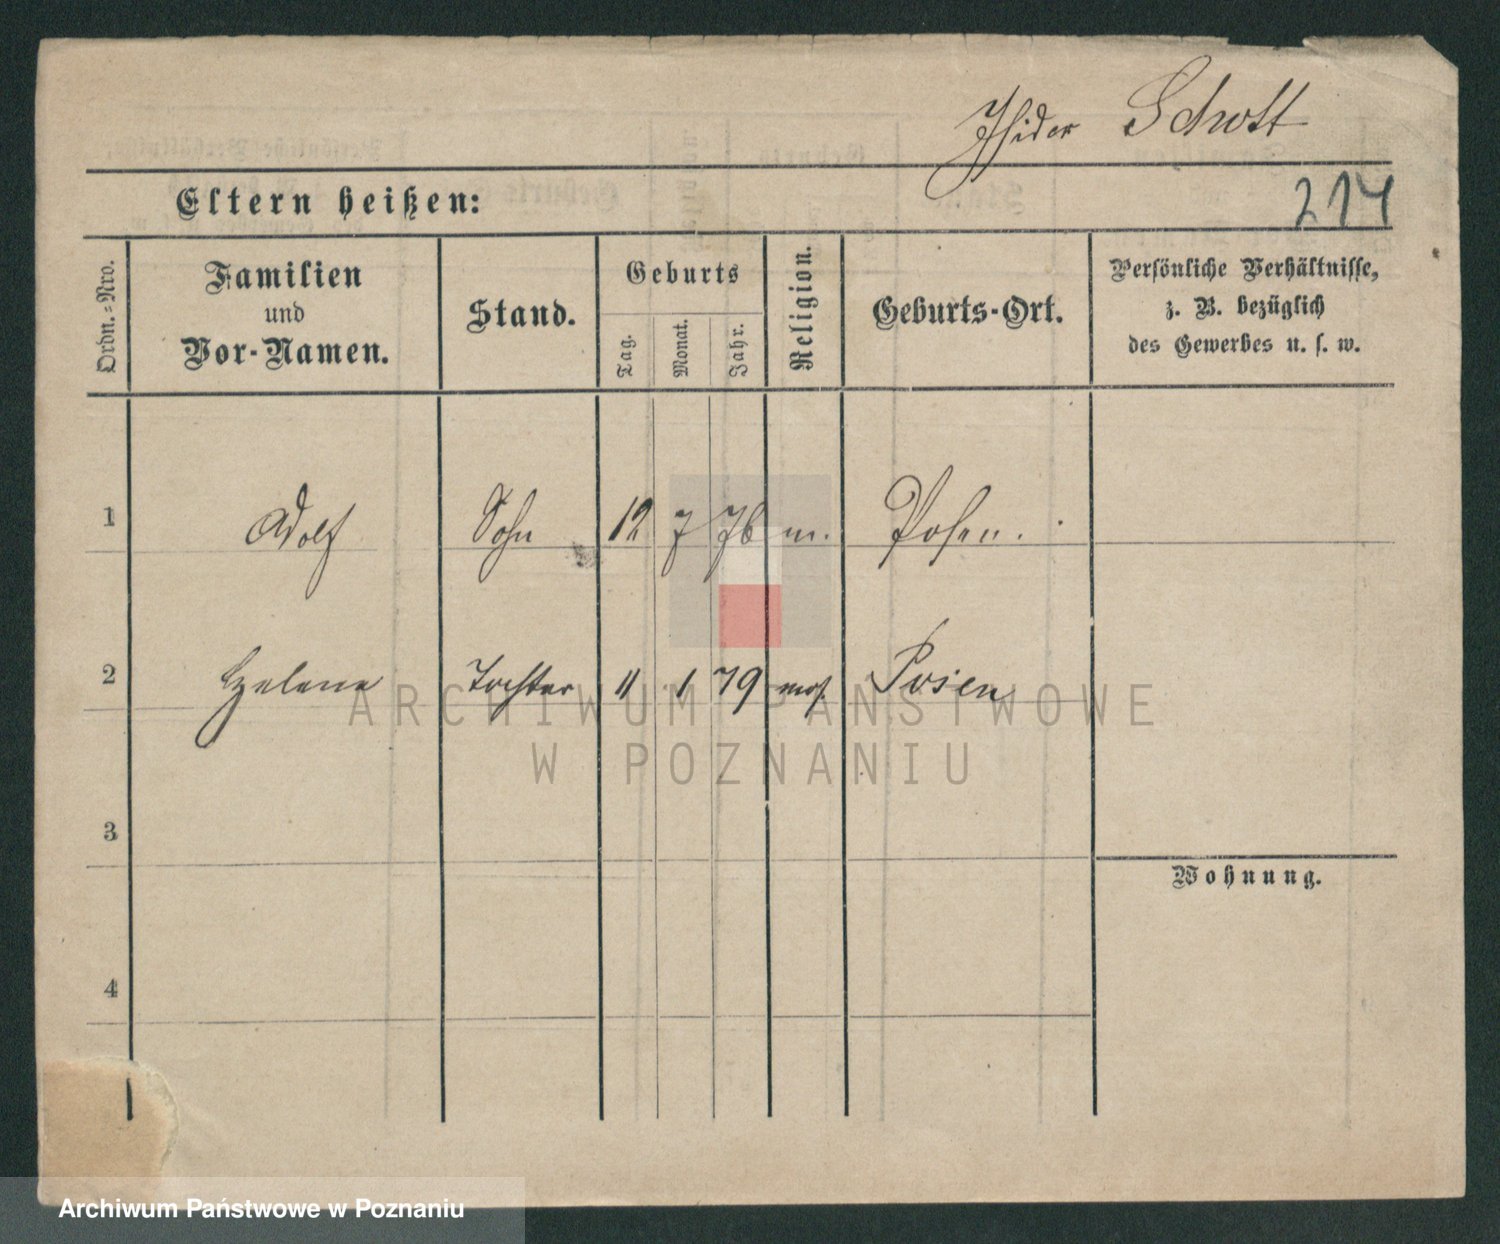 Isidor Schott
Eltern heißen:
214
Ordn.-Nro.
Familien
und
Vor-Namen.
Stand.
Geburts
Tag.
Monat.
Jahr.
Religion.
Geburts-Ort.
Persönliche Verhältnisse,
z. B. bezüglich
des Gewerbes u. s. w.
1 Adolf Sohn 12 7 76 m. Posen.
2 Helene Tochter 11 1 79 mos. Posen
ARCHIWUM PAŃSTWOWE
W POZNANIU
3
Wohnung.
4
Archiwum Państwowe w Poznaniu